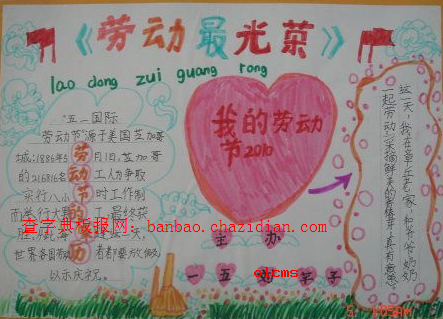 《劳动最光荣》
lao dong zui guang rong
"五一国际
劳动节"源于美国芝加哥
城,1886年5月1日,芝加哥
的216816名工人为争取
实行八小时工作制
而举行大罢工,最终获
世界各国劳动者都要放假
以示庆祝。
劳动节的来历
我的劳动
节2010
主 办
一 五
这一天,我在章丘老家,和爷爷奶奶
一起劳动,采摘鲜美的香椿芽,真有意思!
查字典板报网:banbao.chazidian.com